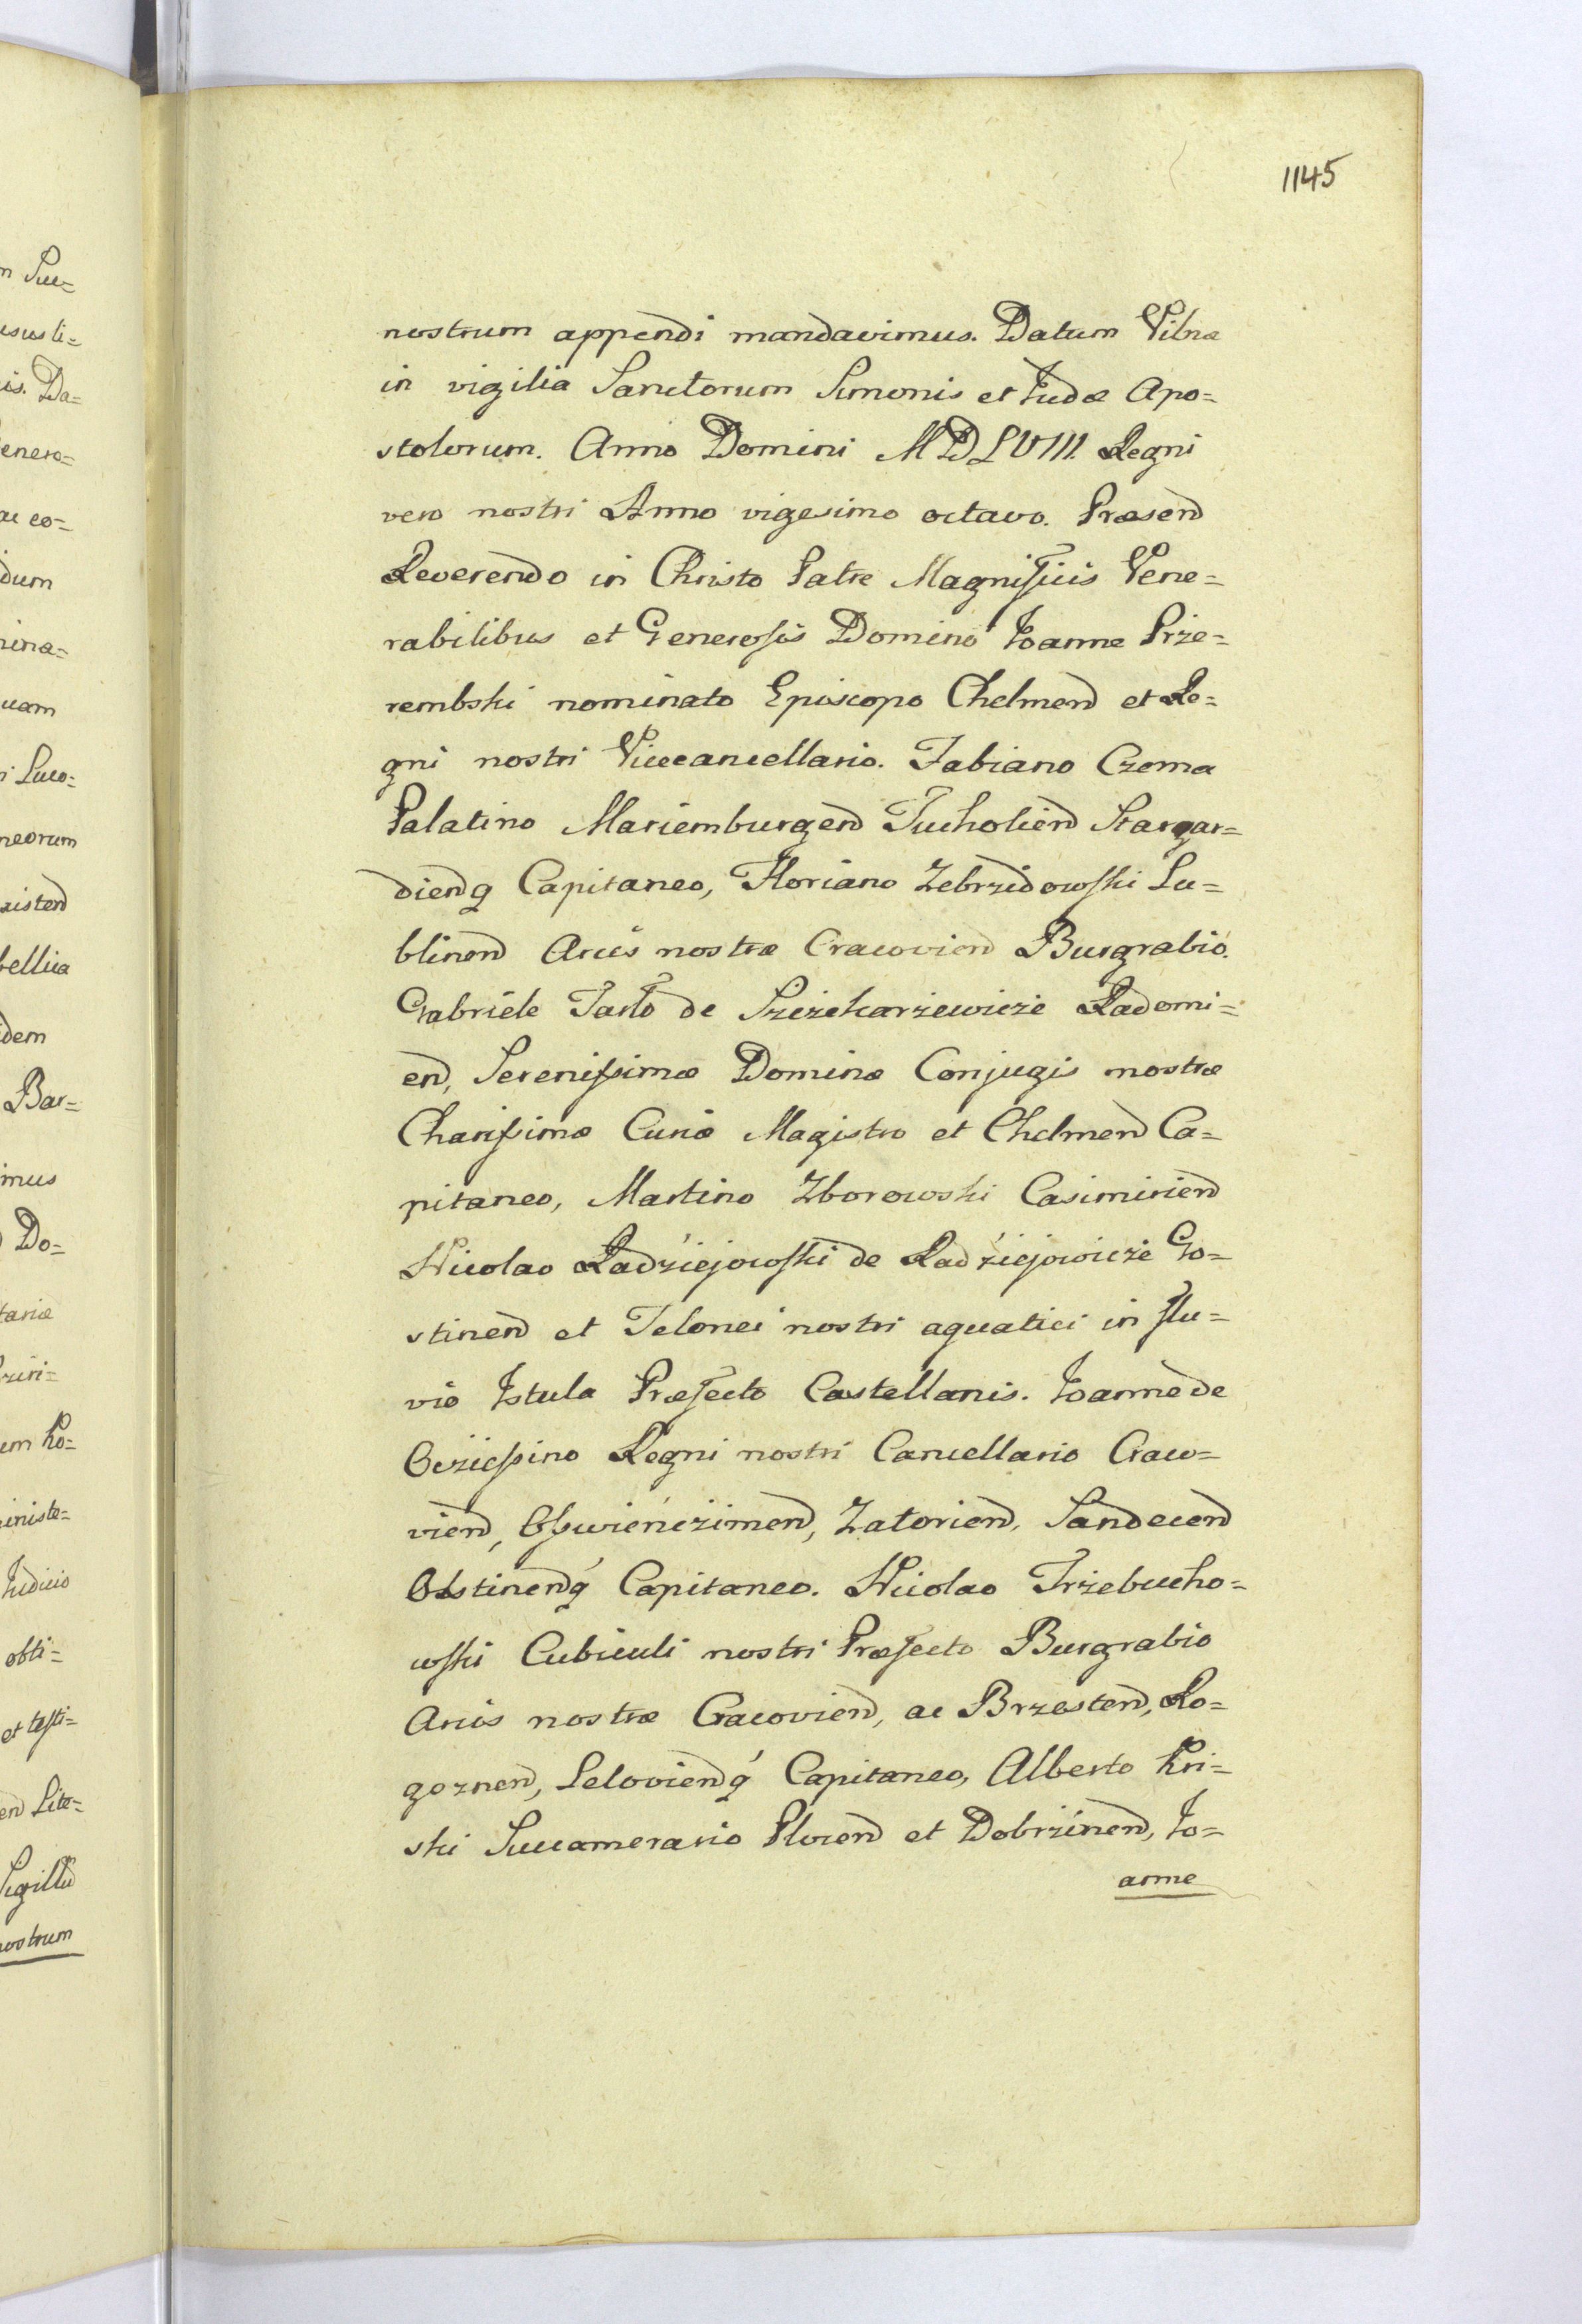 1145
nostrum appendi mandavimus. Datum Vilnæ
in vigilia Sanctorum Simonis et Judæ Apo=
stolorum. Anno Domini MDLVIII. Regni
vero nostri Anno vigesimo octavo. Præsend
Reverendo in Christo Patre Magnificis Vene=
rabilibus et Generosis Domino Joanne Prze=
rembski nominato Episcopo Chelmend et Re=
gni nostri Vicecancellario. Fabiano Czema
Palatino Mariemburgend Tucholiend Stargar=
diendq Capitaneo, Floriano Zebrzidowski Lu=
blinend Arcis nostræ Cracoviend Burgrabio.
Gabriele Tarlo de Szczekarzewicze Radomi=
end, Serenissimæ Dominæ Conjugis nostræ
Charissimæ Curiæ Magistro et Chelmend Ca=
pitaneo, Martino Zborowski Casimiriend
Nicolao Radziejowski de Radziejowicze Go=
stinend et Telonei nostri aquatici in flu=
vio Istula Præfecto Castellanis. Joanne de
Ocziessino Regni nostri Cancellario Craco=
viend, Osswiencimend, Zatoriend, Sandecend
Olstinendq Capitaneo. Nicolao Trzebucho=
wski Cubiculi nostri Præfecto Burgrabio
Arcis nostræ Cracoviend, ac Brzestend, Ro=
goznend, Leloviendq Capitaneo, Alberto Kri=
ski Succamerario Plocend et Dobrzinend, Jo=
anne